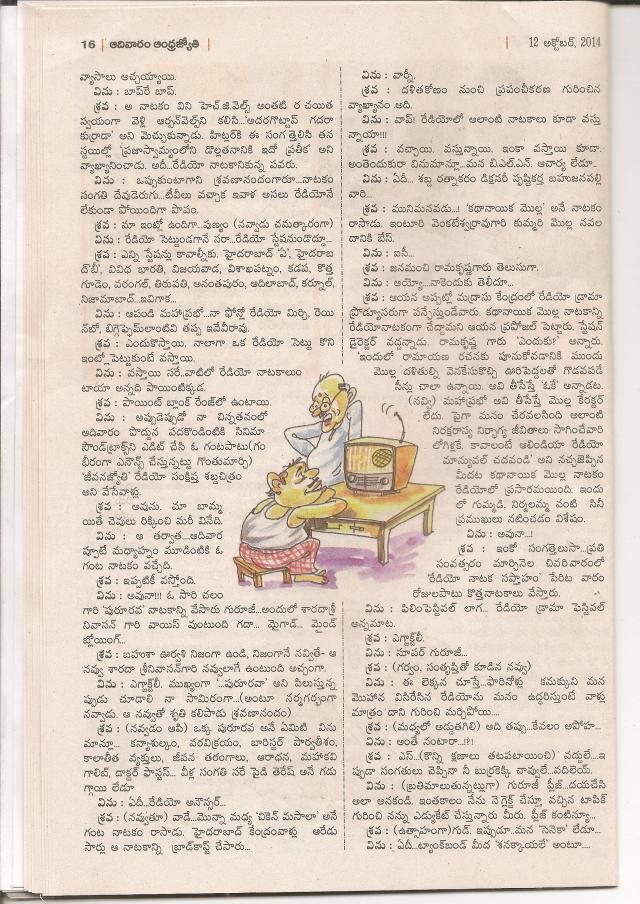 16 | ఆదివారం ఆంధ్రజ్యోతి |
| 12 అక్టోబర్, 2014
వ్యాసాలు అచ్చయ్యాయి.
విను : బాప్‌రే బాప్.
శ్రవ : ఆ నాటకం విని హెచ్.జి.వెల్స్ అంతటి రచయిత
స్వయంగా వెళ్లి ఆర్సన్‌వెల్స్‌ని కలిసి...'అదరగొట్టావ్ గదరా
కుర్రాడా' అని మెచ్చుకున్నాడు. హిట్లర్‌కి ఈ సంగత్తెలిసి తన
స్టయిల్లో 'ప్రజాస్వామ్యంలోని డొల్లతనానికి ఇదో ప్రతీక' అని
వ్యాఖ్యానించాడు. అదీ...రేడియో నాటకానికున్న పవరు.
విను : ఒప్పుకుంటాగాని శ్రవణానందంగారూ...నాటకం
సంగతి దేవుడెరుగు...టీవీలు వచ్చాక ఇవాళ అసలు రేడియోనే
లేకుండా పోయిందిగా పాపం.
శ్రవ : మా ఇంట్లో ఉందిగా...పుణ్యం (నవ్వాడు చమత్కారంగా)
విను : రేడియో సెట్టుండగానే సరా...రేడియో స్టేషనుండొద్దూ...
శ్రవ : ఎన్ని స్టేషన్లు కావాల్నీకు. హైదరాబాద్ 'ఏ', హైదరాబా
ద్‌'బీ', వివిధ భారతి, విజయవాడ, విశాఖపట్నం, కడప, కొత్త
గూడెం, వరంగల్, తిరుపతి, అనంతపురం, ఆదిలాబాద్, కర్నూల్,
నిజామాబాద్...ఇవిగాక...
విను : ఆపండి మహాప్రభో...నా ఫోన్లో రేడియో మిర్చి, రెయి
న్‌బో, బిగ్గెఫ్ఫెమ్‌లాంటివి తప్ప ఇవేవీరావు.
శ్రవ : ఎందుకొస్తాయి. నాలాగా ఒక రేడియో సెట్టు కొని
ఇంట్లో పెట్టుకుంటే వస్తాయి.
విను : వస్తాయి సరే..వాటిలో రేడియో నాటకాలుం
టాయా అన్నది పాయింటిక్కడ.
శ్రవ : పాయింట్ బ్లాంక్ రేంజ్‌లో ఉంటాయి.
విను : అప్పుడెప్పుడో నా చిన్నతనంలో
ఆదివారం పొద్దున్న పదకొండింటికి సినిమా
సౌండ్‌ట్రాక్స్‌ని ఎడిట్ చేసి ఓ గంటపాటు(గం
భీరంగా ఎనౌన్స్ చేస్తున్నట్టు గొంతుమార్చి)
'జీవనజ్యోతి' రేడియో సంక్షిప్త శబ్దచిత్రం
అని వేసేవాళ్లు.
శ్రవ : అవును. మా బామ్మ
యితే చెవులు రిక్కించి మరీ వినేది.
విను : ఆ తర్వాత...ఆదివార
ప్పూటే మధ్యాహ్నం మూడింటికి ఓ
గంట నాటకం వచ్చేది.
శ్రవ : ఇప్పటికీ వస్తోంది.
విను : అవునా!!! ఓ సారి చలం
గారి 'పురూరవ' నాటకాన్ని వేసారు గురూజీ...అందులో శారదాశ్రీ
నివాసన్ గారి వాయిస్ వుంటుంది గదా... మైగాడ్... మైండ్
బ్లోయింగ్...
శ్రవ : బహుశా ఊర్వశి నిజంగా ఉండి, నిజంగానే నవ్వితే- ఆ
నవ్వు శారదా శ్రీనివాసన్‌గారి నవ్వులాగే ఉంటుంది అచ్చంగా.
విను : ఎగ్జాక్ట్‌లీ. ముఖ్యంగా '...పురూరవా' అని పిలుస్తున్న
ప్పుడు చూడాలి నా సామిరంగా...(అంటూ నర్మగర్భంగా
నవ్వాడు. ఆ నవ్వుతో శృతి కలిపాడు శ్రవణానందం)
శ్రవ : (నవ్వడం ఆపి) ఒక్క పురూరవ అనే ఏమిటి విను
మామ్నూ... కన్యాశుల్కం, వరవిక్రయం, బారిస్టర్ పార్వతీశం,
కాలాతీత వ్యక్తులు, జీవన తరంగాలు, ఆరాధన, మహాకవి
గాలిబ్, డాక్టర్ ఫాస్టస్... వీళ్ల సంగతి సరే పైడి తెరేష్ అనే గడు
గ్గాయి లేడూ
విను : ఏదీ..రేడియో అనౌన్సర్...
శ్రవ : (నవ్వుతూ) వాడే..మొన్నా మధ్య 'చికెన్ మసాలా' అనే
గంట నాటకం రాసాడు. హైదరాబాద్ కేంద్రంవాళ్లు అరేడు
సార్లు ఆ నాటకాన్ని బ్రాడ్‌కాస్ట్ చేసారు...
విను : వార్నీ.
శ్రవ : దళితకోణం నుంచి ప్రపంచీకరణ గురించిన
వ్యాఖ్యానం అది.
విను : వావ్! రేడియోలో అలాంటి నాటకాలు కూడా వస్తు
న్నాయా!!!
శ్రవ : వచ్చాయి. వస్తున్నాయి. ఇంకా వస్తాయి కూడా.
అంతెందుకురా వినుమామ్నూ...మన బి.ఎల్.ఎన్. ఆచార్య లేడూ..
విను : ఏదీ... శబ్ద రత్నాకరం డిక్షనరీ సృష్టికర్త బహుజనపల్లి
వారి...
శ్రవ : మునిమనవడు...! 'కథానాయిక మొల్ల' అనే నాటకం
రాసాడు. ఇంటూరి వెంకటేశ్వరావుగారి కుమ్మరి మొల్ల నవల
దానికి బేస్.
విను : ఐసీ...
శ్రవ : జనమంచి రామకృష్ణగారు తెలుసుగా.
విను : అయ్యో...నాకెందుకు తెలీదూ...
శ్రవ : ఆయన అప్పట్లో మద్రాసు కేంద్రంలో రేడియో డ్రామా
ప్రొడ్యూసరుగా పన్చేస్తుండేవారు. కథానాయిక మొల్ల నాటకాన్ని
రేడియోనాటకంగా చేద్దామని ఆయన ప్రపోజల్ పెట్టారు. స్టేషన్
డైరెక్టర్ వద్దన్నాడు. రామకృష్ణ గారు 'ఎందుకు?' అన్నారు.
'ఇందులో రామాయణ రచనకు పూనుకోవడానికి ముందు
మొల్ల దళితుల్ని వెనకేసుకొచ్చి ఊరిపెద్దలతో గొడవపడే
సీన్లు చాలా ఉన్నాయి. అవి తీసేస్తే 'ఓకే' అన్నాడట.
(నవ్వి) మహాప్రభో అవి తీసేస్తే మొల్ల కేరక్టర్
లేదు. పైగా మనం చేరవలసింది అలాంటి
నిరక్షరాస్య నిర్భాగ్య జీవితాలు సాగించేవారి
లోగిళ్లకే. కావాలంటే ఆలిండియా రేడియో
మాన్యువల్ చదవండి' అని నచ్చజెప్పిన
మీదట కథానాయిక మొల్ల నాటకం
రేడియోలో ప్రసారమయింది. ఇందు
లో గుమ్మడి, నిర్మలమ్మ వంటి సినీ
ప్రముఖులు నటించడం విశేషం.
విను : అవునా...!
శ్రవ : ఇంకో సంగత్తెలుసా...ప్రతి
సంవత్సరం మార్చినెల చివరివారంలో
'రేడియో నాటక సప్తాహం' పేరిట వారం
రోజులపాటు కొత్తనాటకాలు వేస్తారు.
విను : ఫిలింఫెస్టివల్ లాగ.. రేడియో డ్రామా ఫెస్టివల్
అన్నమాట.
శ్రవ : ఎగ్జాక్ట్‌లీ.
విను : సూపర్ గురూజీ...
శ్రవ : (గర్వం, సంతృప్తితో కూడిన నవ్వు)
విను : ఈ లెక్కన చూస్తే...ఫారినోళ్లు కనుక్కుని మన
మొహాన విసిరేసిన రేడియోను మనం ఉద్ధరిస్తుంటే వాళ్లు
మాత్రం దాని గురించి మర్చిపోయి....
శ్రవ : (మధ్యలో అడ్డుతగిలి) అది తప్పు...కేవలం అపోహ...
విను : అంతే నంటారా...!?!
శ్రవ : ఎస్...(కొన్ని క్షణాలు తటపటాయించి) వద్దులే....ఇ
ప్పుడా సంగతులు చెప్పినా నీ బుర్రకెక్కి చావ్వులే..వదిలెయ్.
విను : (బ్రతిమాలుతున్నట్లుగా) గురూజీ ప్లీజ్...దయచేసి
అలా అనకండి. ఇంతకాలం నేను నెగ్లెక్ట్ చేస్తూ వచ్చిన టాపిక్
గురించి నన్ను ఎడ్యుకేట్ చేస్తున్నారు మీరు. ప్లీజ్ కంటిన్యూ...
శ్రవ : (ఉత్సాహంగా)గుడ్. ఇప్పుడూ..మన 'సెనెకా' లేడూ...
విను : ఏదీ...ట్యాంక్‌బండ్ మీద 'శనక్కాయలే' అంటూ....